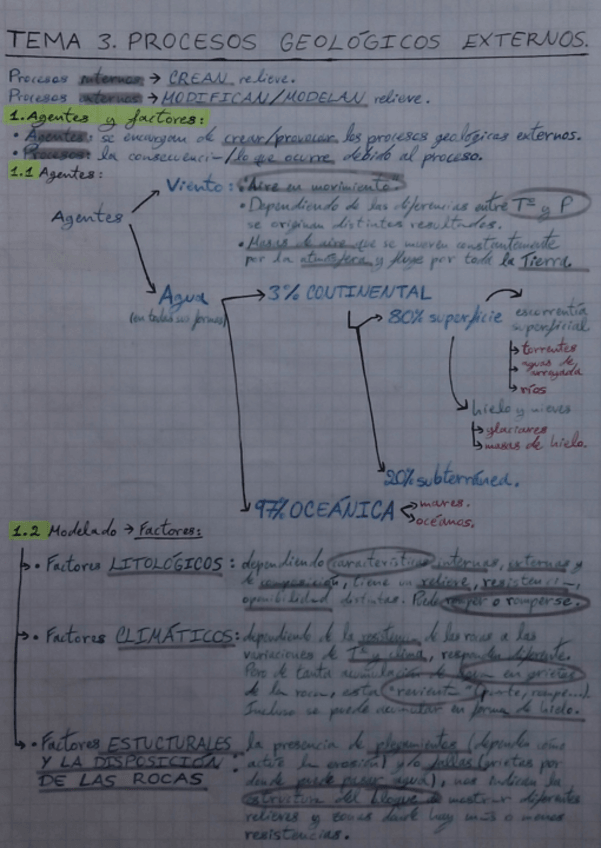 TEMA 3. PROCESOS GEOLÓGICOS EXTERNOS.
Procesos internos → CREAN relieve.
Procesos externos → MODIFICAN/MODELAN relieve.
1. Agentes y factores:
• Agentes: se encargan de crear/provocar los procesos geológicos externos.
• Procesos: la consecuenci-/lo que ocurre debido al proceso.
1.1 Agentes:
Agentes
Viento: "Aire en movimiento"
• Dependiendo de las diferencias entre Tª y P
se originan distintos resultados.
• Masas de aire que se mueven constantemente
por la atmósfera y fluye por toda la Tierra.
Agua
(en todas sus formas)
3% CONTINENTAL
80% superficie
escorrentía
superficial
torrentes
aguas de
arroyada
ríos
hielo y nieves
glaciares
masas de hielo.
20% subterránea.
97% OCEÁNICA
mares.
océanos.
1.2 Modelado → Factores:
• Factores LITOLÓGICOS: dependiendo características internas, externas y
de composición, tiene un relieve, resistenci-,
distintas. Puede romper o romperse.
• Factores CLIMÁTICOS: dependiendo de la de las rocas a las
variaciones de Tª y clima, responden diferente.
Pero de tanta acumulación de agua en grietas
de la roca, esta "revienta" (parte, rompe...).
Incluso se puede acumular en forma de hielo.
• Factores ESTUCTURALES
Y LA DISPOSICIÓN
DE LAS ROCAS :
la presencia de plegamientos (depende cómo
actúe la erosión) y/o fallas (grietas por
donde puede pasar agua), nos indican la
estructura del bloque de mostrar diferentes
relieves y zonas donde hay más o menos
resistencias.